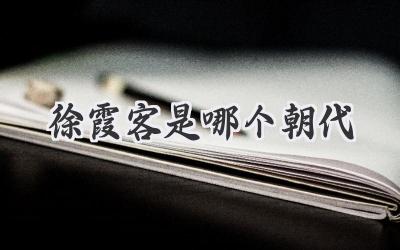 徐霞客是哪个朝代